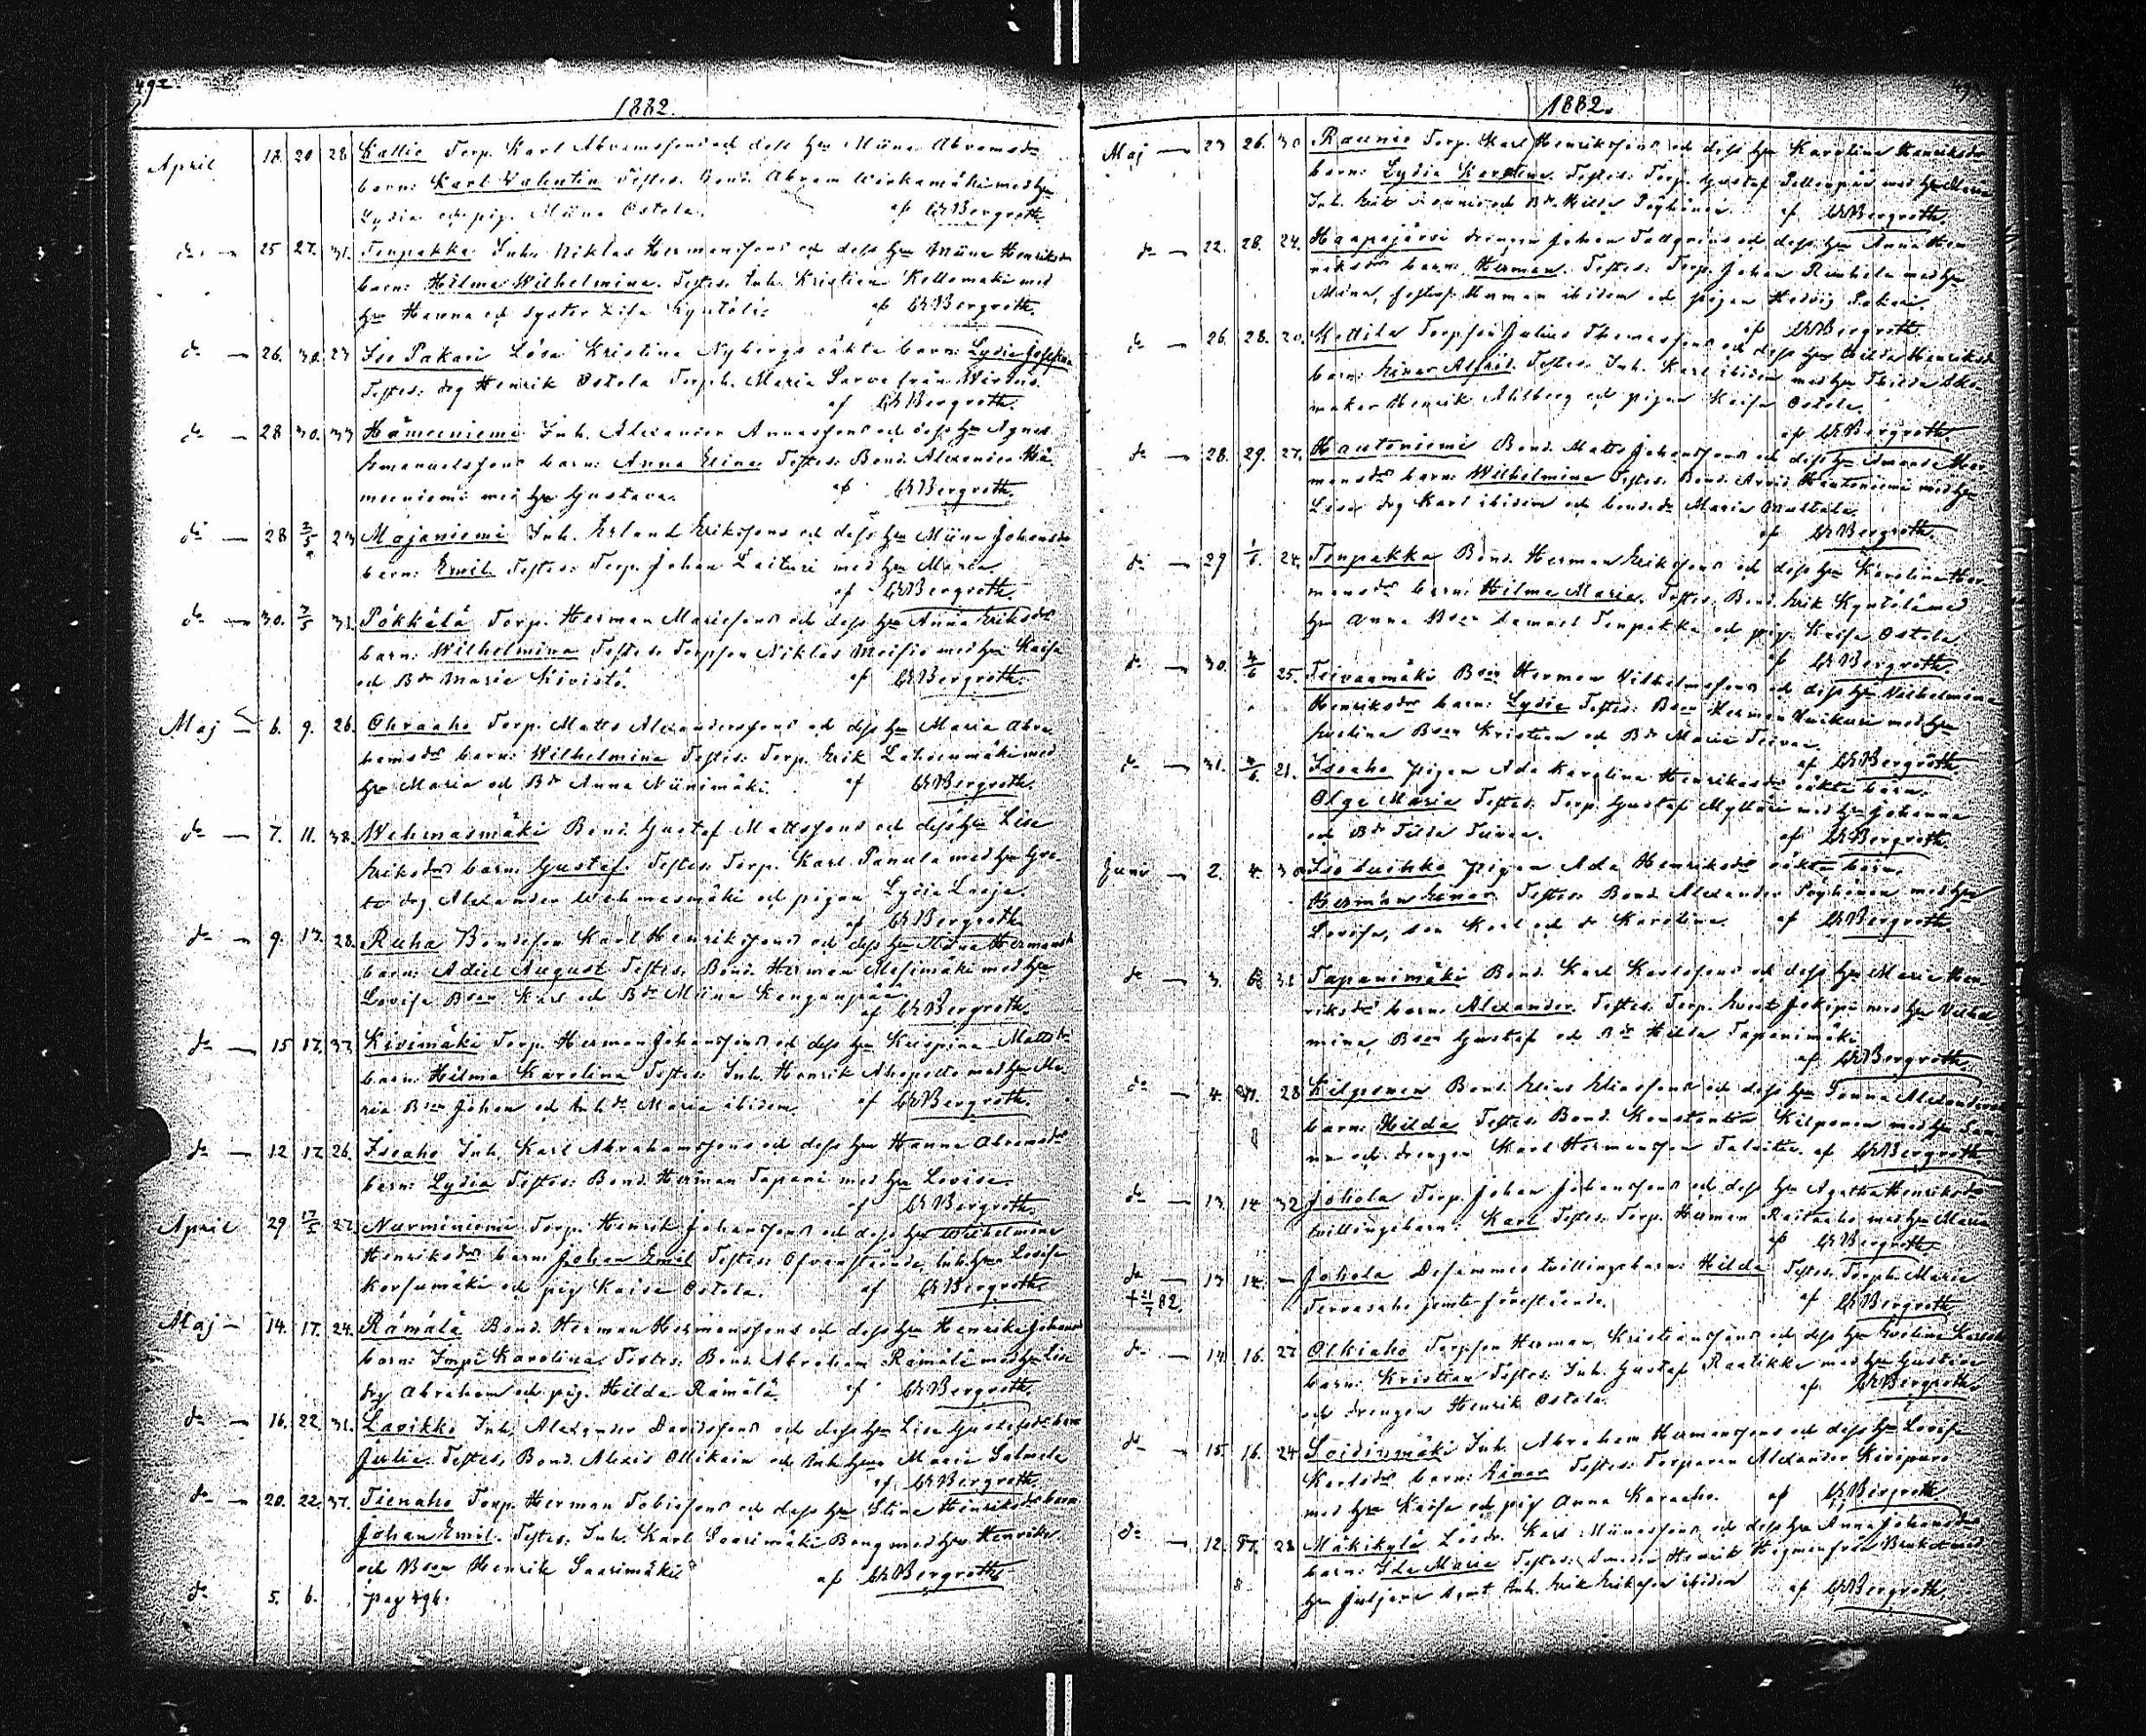 492.
1882.
April 18. 20 28 Kallio Torp. Karl Abramsson och dess hu Miina Abramsdr
barn: Karl Valentin Testes: Bond. Abram med hu
Lydia och pig. Miina Ostola. af Bergroth.
do 25 27. 31. Tenpakka Inh. Niklas Hermansson och dess hu Miina Henriksdr
barn: Hilma Wilhelmina. Testes: Inh. Kristian Kellomäki med
hu Hanna och syster Lisa Kyntölä. af Bergroth.
do 26. 30. 23 Iso Pakari Lösa Kristina Nybergs oäkta barn: Lydia Josefina
Testes: drg Henrik Ostola Torph. Maria Sarva från Wirdois.
af Bergroth.
do 28 30. 33 Hämeeniemi Inh. Alexander Annasson och dess hu Agnes
Emanuelsson barn: Anna Elina Testes: Bond. Alexander Hä-
meeniemi med hu Gustava. af Bergroth.
do 28 2/5 23 Majaniemi Inh. Erland Eriksson och dess hu Miina Johansdr
barn: Emil. Testes: Torp. Johan Laituri med hu Maria
af Bergroth.
do 30. 7/5 31. Pökkälä Torp. Herman Mariesson och dess hu Anna Eriksdr
barn: Wilhelmina Testes: Torpson Niklas Meisio med hu Kaisa
och Bdr Maria Niivistö. af Bergroth.
Maj 6. 9. 26. Ohraaho Torp. Matts Alexandersson och dess hu Maria Abra-
hamsdr barn: Wilhelmina Testes: Torp. Erik Lahdenmäki med
hu Maria och Bdr Anna Niinimäki. af Bergroth.
do 7. 11. 38. Wehmasmäki Bond. Gustaf Mattsson och dess hu Lisa
Eriksdr barn: Gustaf. Testes: Torp. Karl Panula med hu Gre-
ta drg Alexander Wehmasmäki och pigan Lydia Laaja.
af Bergroth
do 9. 13. 28. Ruha Bondeson Karl Henriksson och dess hu Miina Hermansdr
barn: Adiel August Testes: Bond. Herman Mesimäki med hu
Lovisa Bson Karl och Bdr Miina Kangaspää
af Bergroth.
do 15 17. 33. Kivimäki Torp. Herman Johansson och dess hu Krispina Mattsdr
barn: Hilma Karolina Testes: Inh. Henrik Ahopelto med hu Ma-
ria Bson Johan och Inhdr Maria ibidem. af Bergroth.
do 12 17. 26. Isoaho Inh. Karl Abrahamsson och dess hu Hanna Abramsdr
barn: Lydia Testes: Bond. Herman Tapani med hu Lovisa.
af Bergroth.
April 29 17/5 27. Nurminiemi Torp. Henrik Johansson och dess hu Wilhelmina
Henriksdr barn: Johan Emil Testes: Ofvanstående, Inh. hu Lovisa
Korsumäki och pig Kaisa Ostola. af Bergroth
Maj 14. 17. 24. Rämälä Bond. Herman Hermansson och dess hu Henrika Johansdr
barn: Impi Karolina Testes: Bond. Abraham Rämälä med hu Lisa
drg Abraham och pig. Hilda Rämälä af Bergroth.
do 16. 22. 31. Lavikko Inh. Alexander Davidsson och dess hu Lisa Gustafsdr barn
Julia. Testes: Bond. Alexis Ollikain och Inh hu Maria Salmela
af Bergroth.
do 20. 22. 37. Tienaho Torp. Herman Tobiasson och dess hu Stina Henriksdr barn
Johan Emil. Testes: Inh. Karl Saarimäki Bong med hu Henrika
och Bson Henrik Saarimäki af Bergroth
do 5. 6. pag 496.
1882.
Maj 23 26. 30 Raunio Torp. Karl Henriksson och dess hu Karolina Henriksdr
barn: Lydia Karolina. Testes: Torp. Gustaf med hu Maria
Inh. Erik Raunio och Bdr Hilda Pöyhönen. af Bergroth.
do 22. 28. 24. Haapajärvi drängen Johan Tallgrén och dess hu Anna Hen-
riksdr barn: Herman. Testes: Torp. Johan Rintala med hu
Miina, Herman ibidem och pigan Hedvig Pakari.
af Bergroth.
do 26. 28. 20. Mattila Torpson Julius Thomasson och dess hu Hilda Henriksdr
barn: Einar Alfrid. Testes: Inh. Karl ibidem med hu Thilda Sko-
makar Henrik Ahlberg och pigan Kaisa Ostola.
af Bergroth.
do 28. 29. 27. Hautoniemi Bond. Matts Johansson och dess hu Amanda Her-
mansdr barn: Wilhelmina Testes: Bond. Arvid Hautoniemi med hu
Lisa, drg Karl ibidem och bondedr Maria Multala.
af Bergroth.
do 29 1/6. 24. Tenpakka Bond. Herman Eriksson och dess hu Karolina Her-
mansdr barn: Hilma Maria. Testes: Bond. Erik Kyntölä med
hu Anna Bson Samuel Tenpakka och pig. Kaisa Ostola.
af Bergroth.
do 30. 4/6 25. Teivaamäki Bson Herman Wilhelmsson och dess hu Wilhelmina
Henriksdr barn: Lydia Testes: Bson Herman med hu
Evelina Bson Kristian och Bdr Maria Teivaa.
af Bergroth
do 31. 4/6 21. Isoaho pigan Ada Karolina Henriksdr oäkta barn:
Olga Maria Testes: Torp. Gustaf Mylläri med hu Johanna
och Bdr Tilda Teivaa. af Bergroth.
Juni 2. 4. 30 Iso Luihko pigan Ada Henriksdr oäkta barn:
Herman Einar. Testes: Bond. Alexander Pöyhönen med hu
Lovisa, son Karl och dr Karolina. af Bergroth
do 3. 31 Tapanimäki Bond. Karl Karlsson och dess hu Maria Hen-
riksdr barn: Alexander. Testes: Torp. Evert Jokipii med hu Vilhel-
mina, Bson Gustaf och Bdr Hilda Tapanimäki.
af Bergroth
do 4. 28 Kilponen Bond. Elias Eliasson och dess hu Sanna Alexandersdr
barn: Hilda Testes: Bond. Konstantin Kilponen med hu San-
na och drängen Karl Hermansson Talvitie. af Bergroth
do 13. 14 32 Johola Torp. Johan Johansson och dess hu Agatha Henriksdr
tvillingebarn: Karl Testes: Torp. Herman Raitaaho med hu Maria
af Bergroth.
do 13 14. - Johola Desammes tvillingebarn: Hilda Testes: Torph. Maria
+ 21/7 82. Tervasaho jemte förestående. af Bergroth
do 14. 16. 27 Alkiaho Torpson Herman Kristiansson och dess hu Evelina Karlsdr
barn: Kristian Testes: Inh. Gustaf Raatikka med hu Gustava
och drängen Henrik Ostola. af Bergroth.
do 15. 16. 24 Soidinmäki Inh. Abraham Hermansson och dess hu Lovisa
Karlsdr barn: Einar Testes: Torparen Alexander Kiviparo
med hu Kaisa och pig Anna Karaaho. af Bergroth
do 12. 23 Mäkikylä Karl Miinasson och dess hu Anna Johansdr
barn: Ida Maria Testes: Smeden Henrik Hagman från med
hu Juljana samt Inh. Erik Eriksson ibidem af Bergroth.